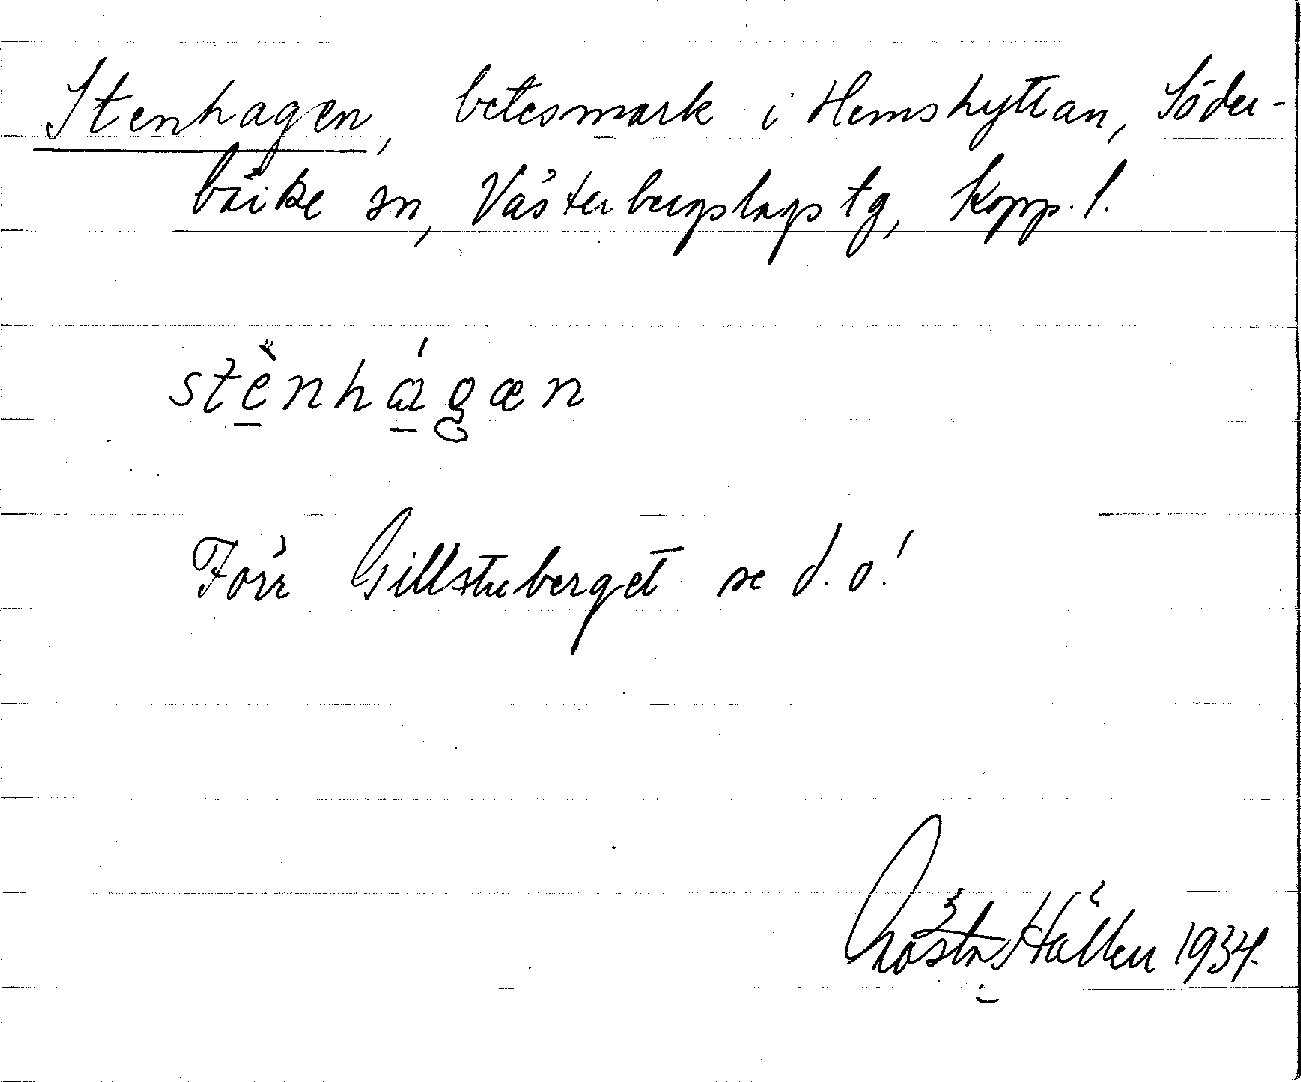 Stenhagen, betesmark i Hemshyttan, Söder-
bärke sn, Västerbergslags tg, Kopp. l.
stènhágæn
Förr Gillstuberget se d. o!
Gösta Hallen 1934.